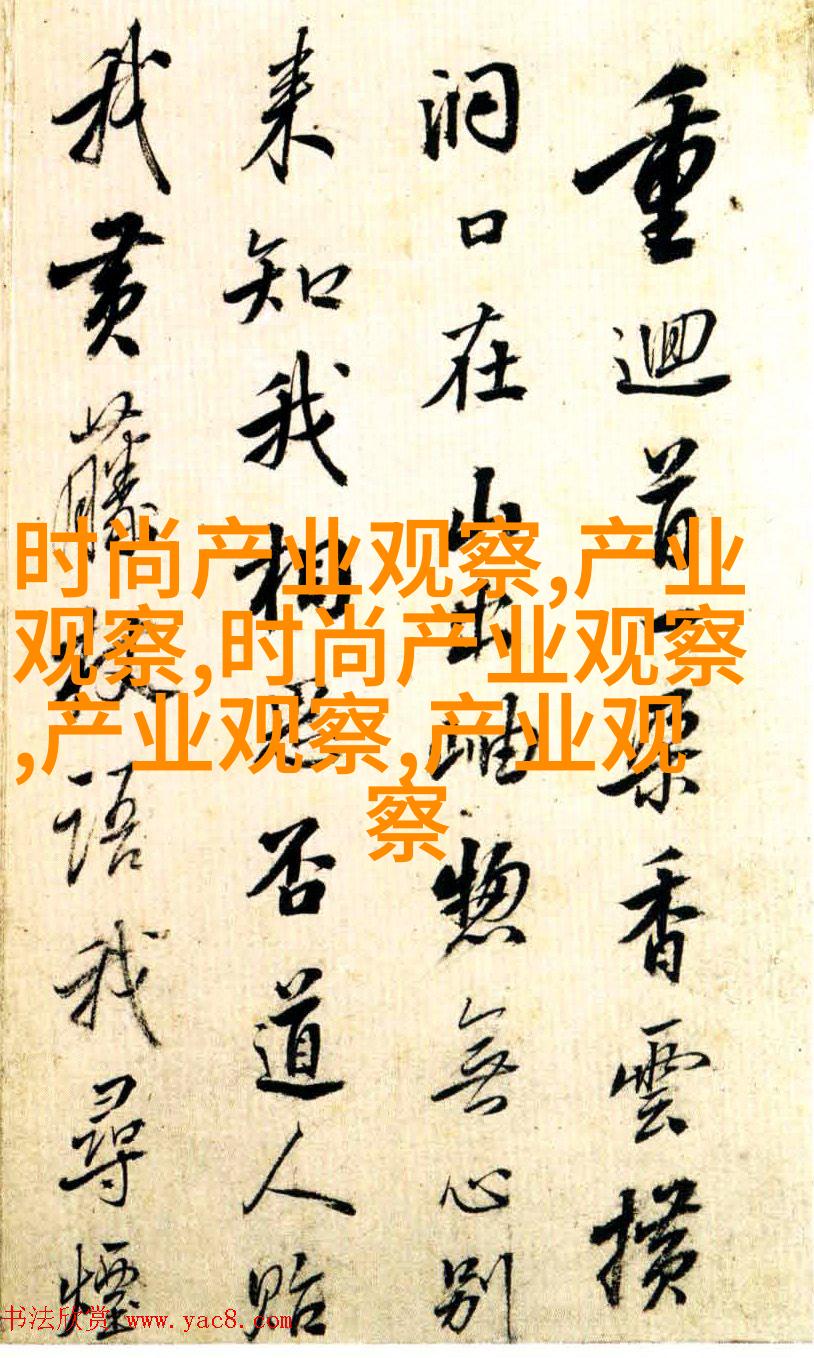 重迴首一朶香雲横
洞口在山出岫惣無心別
来知我相思否道人貽
我黄藤杖語我尋煙
时尚产业观察,产业
观察,时尚产业观察
,产业观察,产业观
察
书法欣赏 www.yac8.com